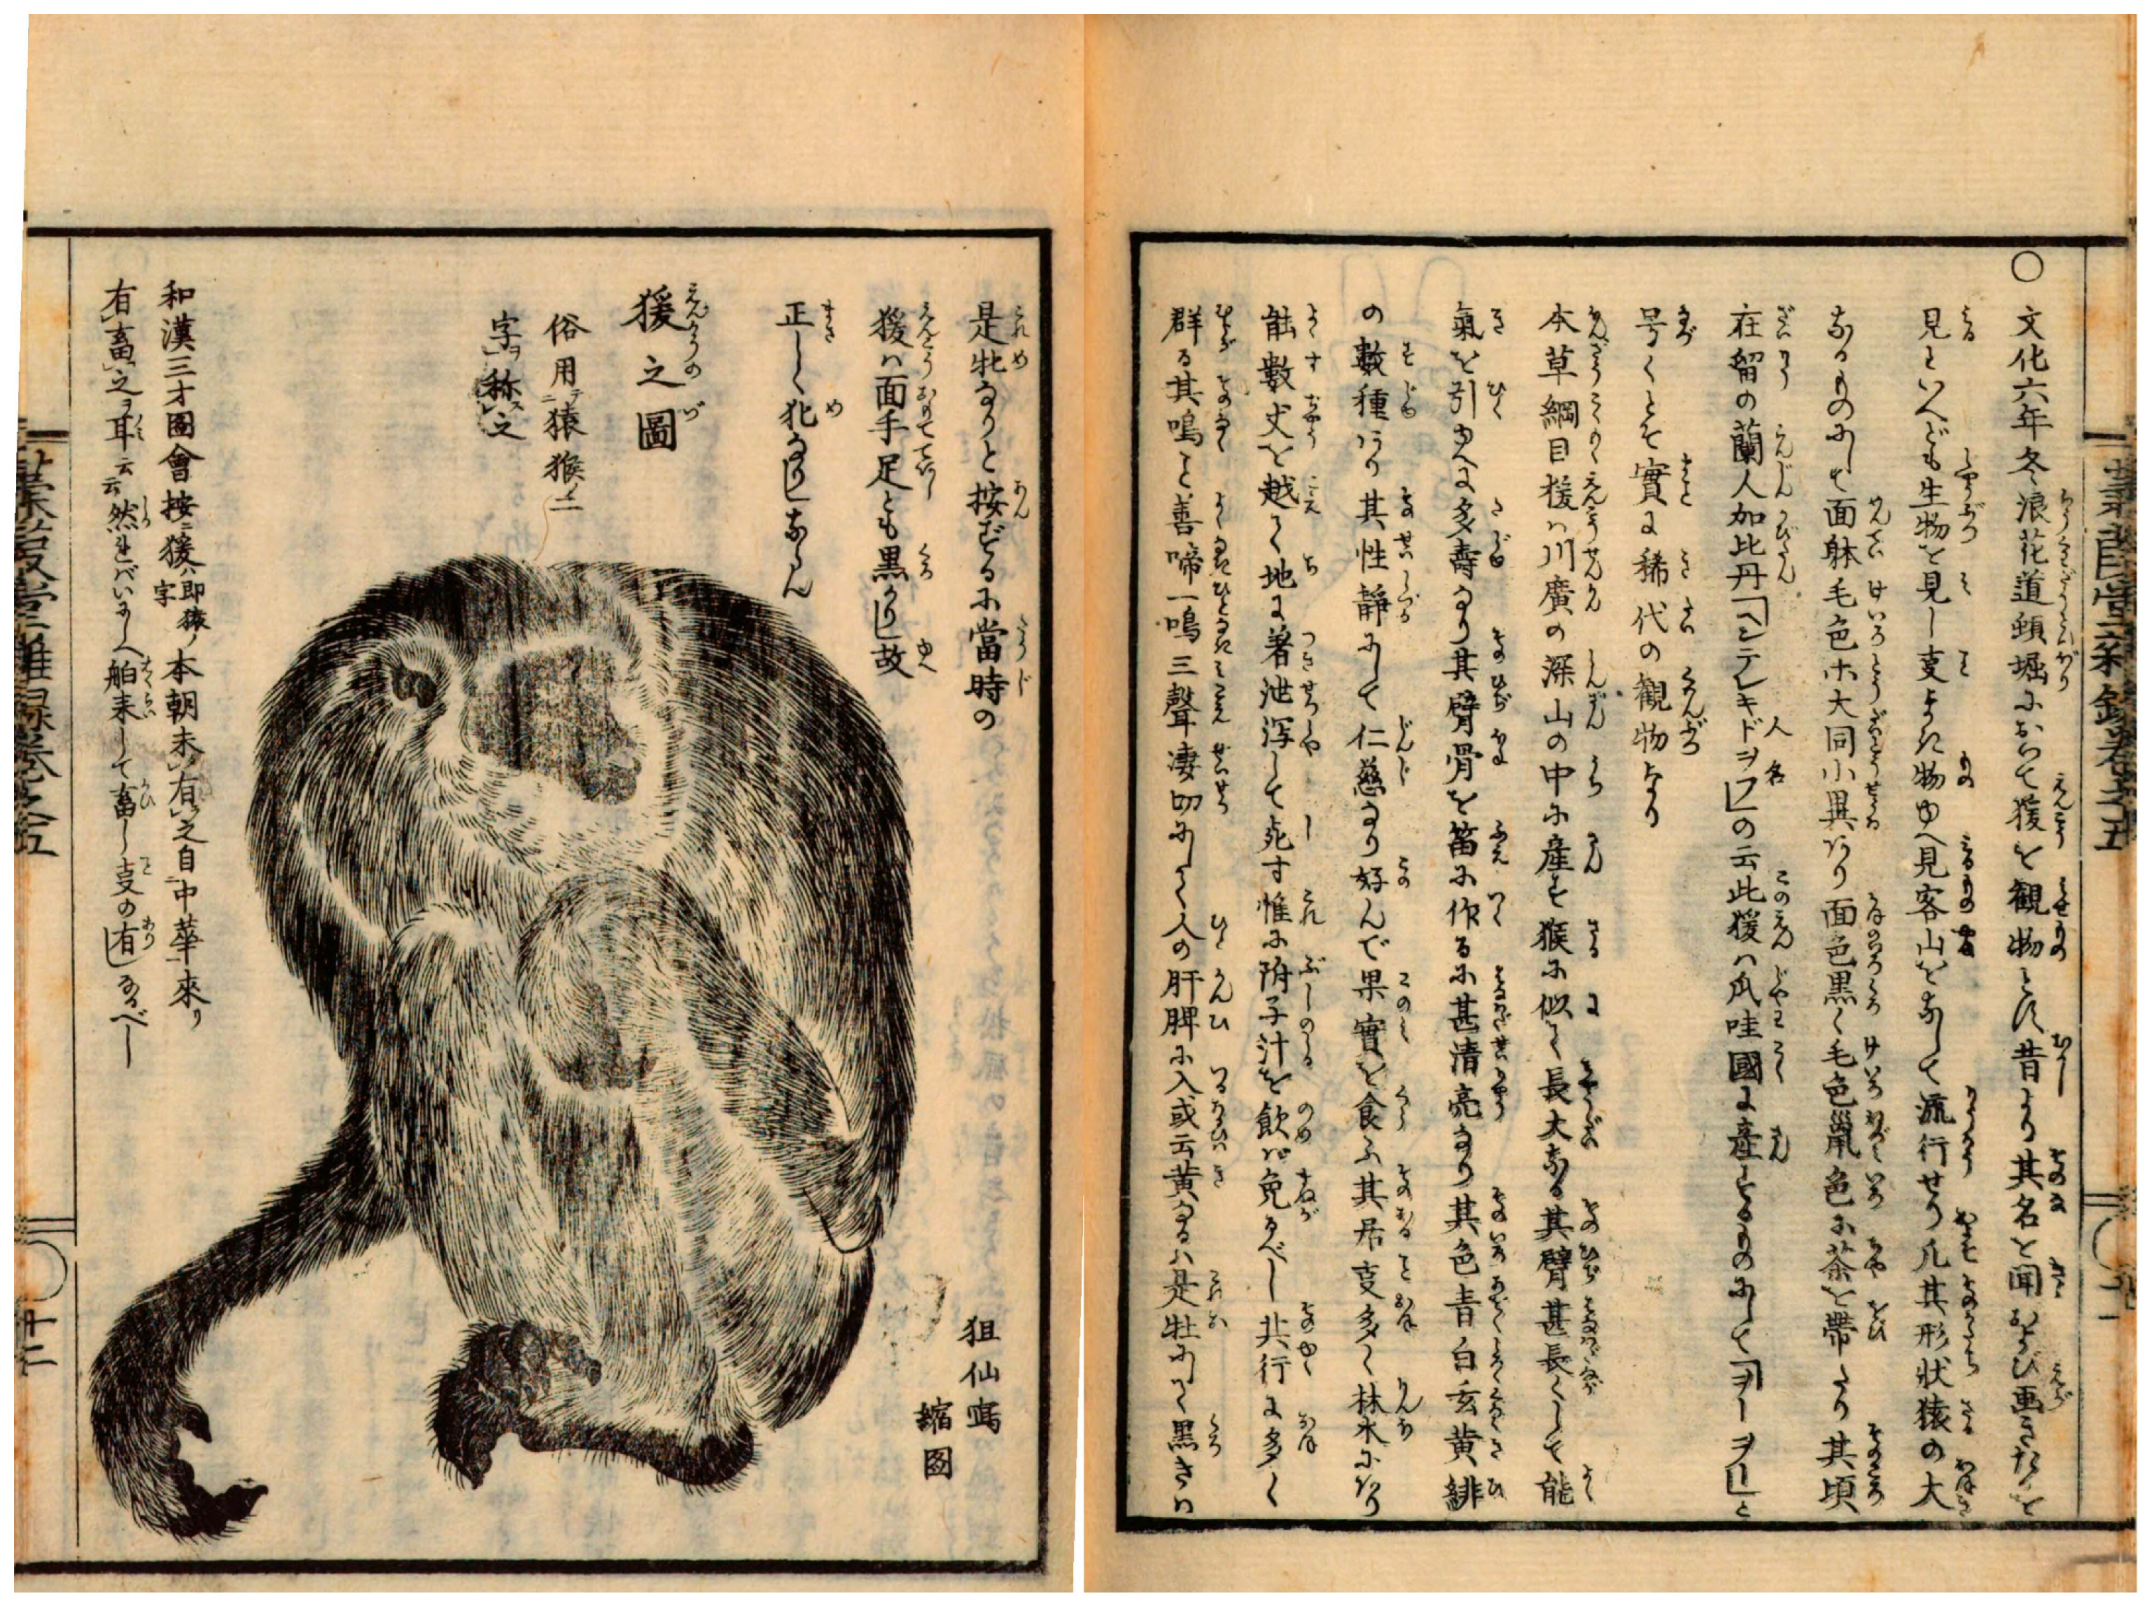 ○文化六年冬浪花道頓堀におゐて猨を観物とす昔より其名を聞および画きたるを
見るといへども生物を見し叓まれ物ゆへ見客山をなして流行せり凡其形状猿の大
なるものにして面躰毛色ホ大同小異あり面色黒く毛色鼠色に茶を帯たり其頃
在留の蘭人加比丹「ヘンテレキドヲフ」の云此猨ハ爪哇國に産するものにして「ヲーヲー」と
号くとぞ實に稀代の観物なり
本草綱目猨ハ川廣の深山の中に産す猴に似て長大なる其臂甚長くして能
氣を引ゆへに多壽なり其臂骨を笛に作るに甚清亮なり其色青白玄黄緋
の數種あり其性静にして仁慈なり好んで果實を食ふ其居叓多く林木にあり
能數丈を越て地に著泄瀉して死す惟に附子汁を飲ハ免るべし其行に多く
群る其鳴こと善啼一鳴三聲凄切にして人の肝脾に入或云黄なるハ是牡にして黒きハ
是牝なりと按ずるに當時の
猨ハ面手足とも黒かりし故
正しく牝なりしならん
猨之圖
俗用テ猿猴ノ二
字ヲ称ス之
和漢三才圖會按ニ猨ハ即猿ノ字本朝未有之自中華來リ
有畜之ヲ耳云云然ればいにしへ舶来して畜し叓の有しなるべし
狙仙寫
縮圖
蒹葭堂雜録巻之五
十一
蒹葭堂雜録巻之五
十二